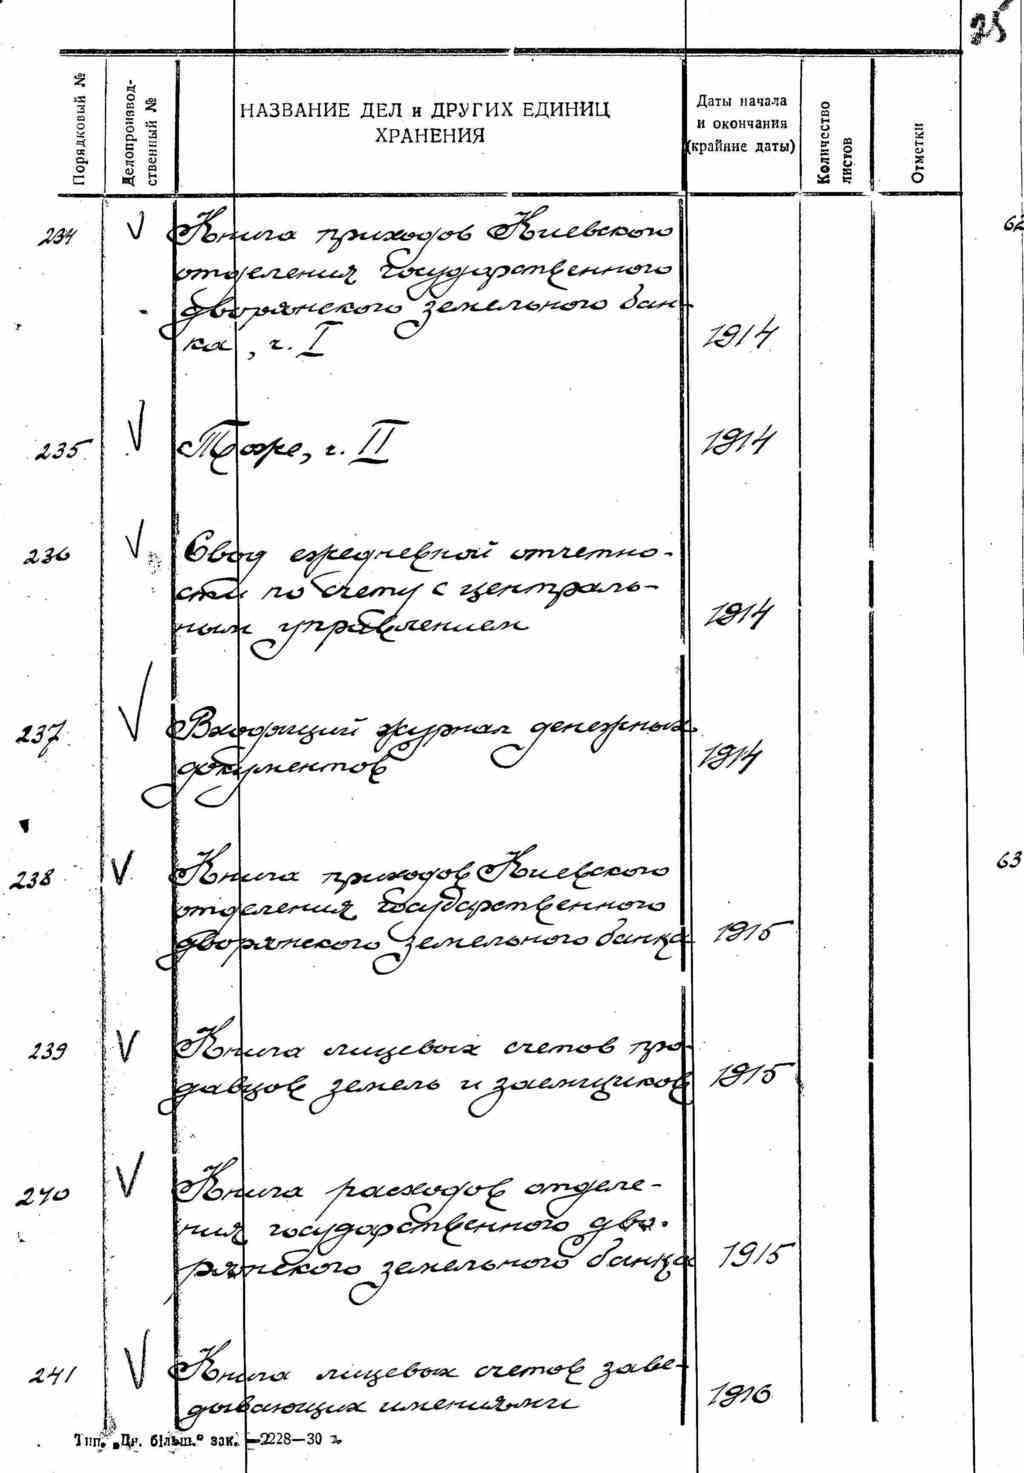 25
Порядковый №
Делопроизвод-
ственный №
НАЗВАНИЕ ДЕЛ и ДРУГИХ ЕДИНИЦ
ХРАНЕНИЯ
Даты начала
и окончания
(крайние даты)
Количество
листов
Отметки
234 V Книга приходов Киевского
отделения государственного
дворянского земельного бан-
ка, ч. I 1914
62
235 V Тоже, ч. II 1914
236 V Свод ежедневной отчетно-
сти по счету с централь-
ным управлением 1914
237 V Входящий журнал денежных
документов 1914
238 V Книга приходов Киевского
отделения государственного
дворянского земельного банка 1915
63
239 V Книга лицевых счетов про-
давцов земель и заемщиков 1915
240 V Книга расходов отделе-
ния государственного дво-
рянского земельного банка 1915
241 V Книга лицевых счетов заве-
дывающих имениями 1916
Тип. „Др. більш." зак. —2228—30 г.